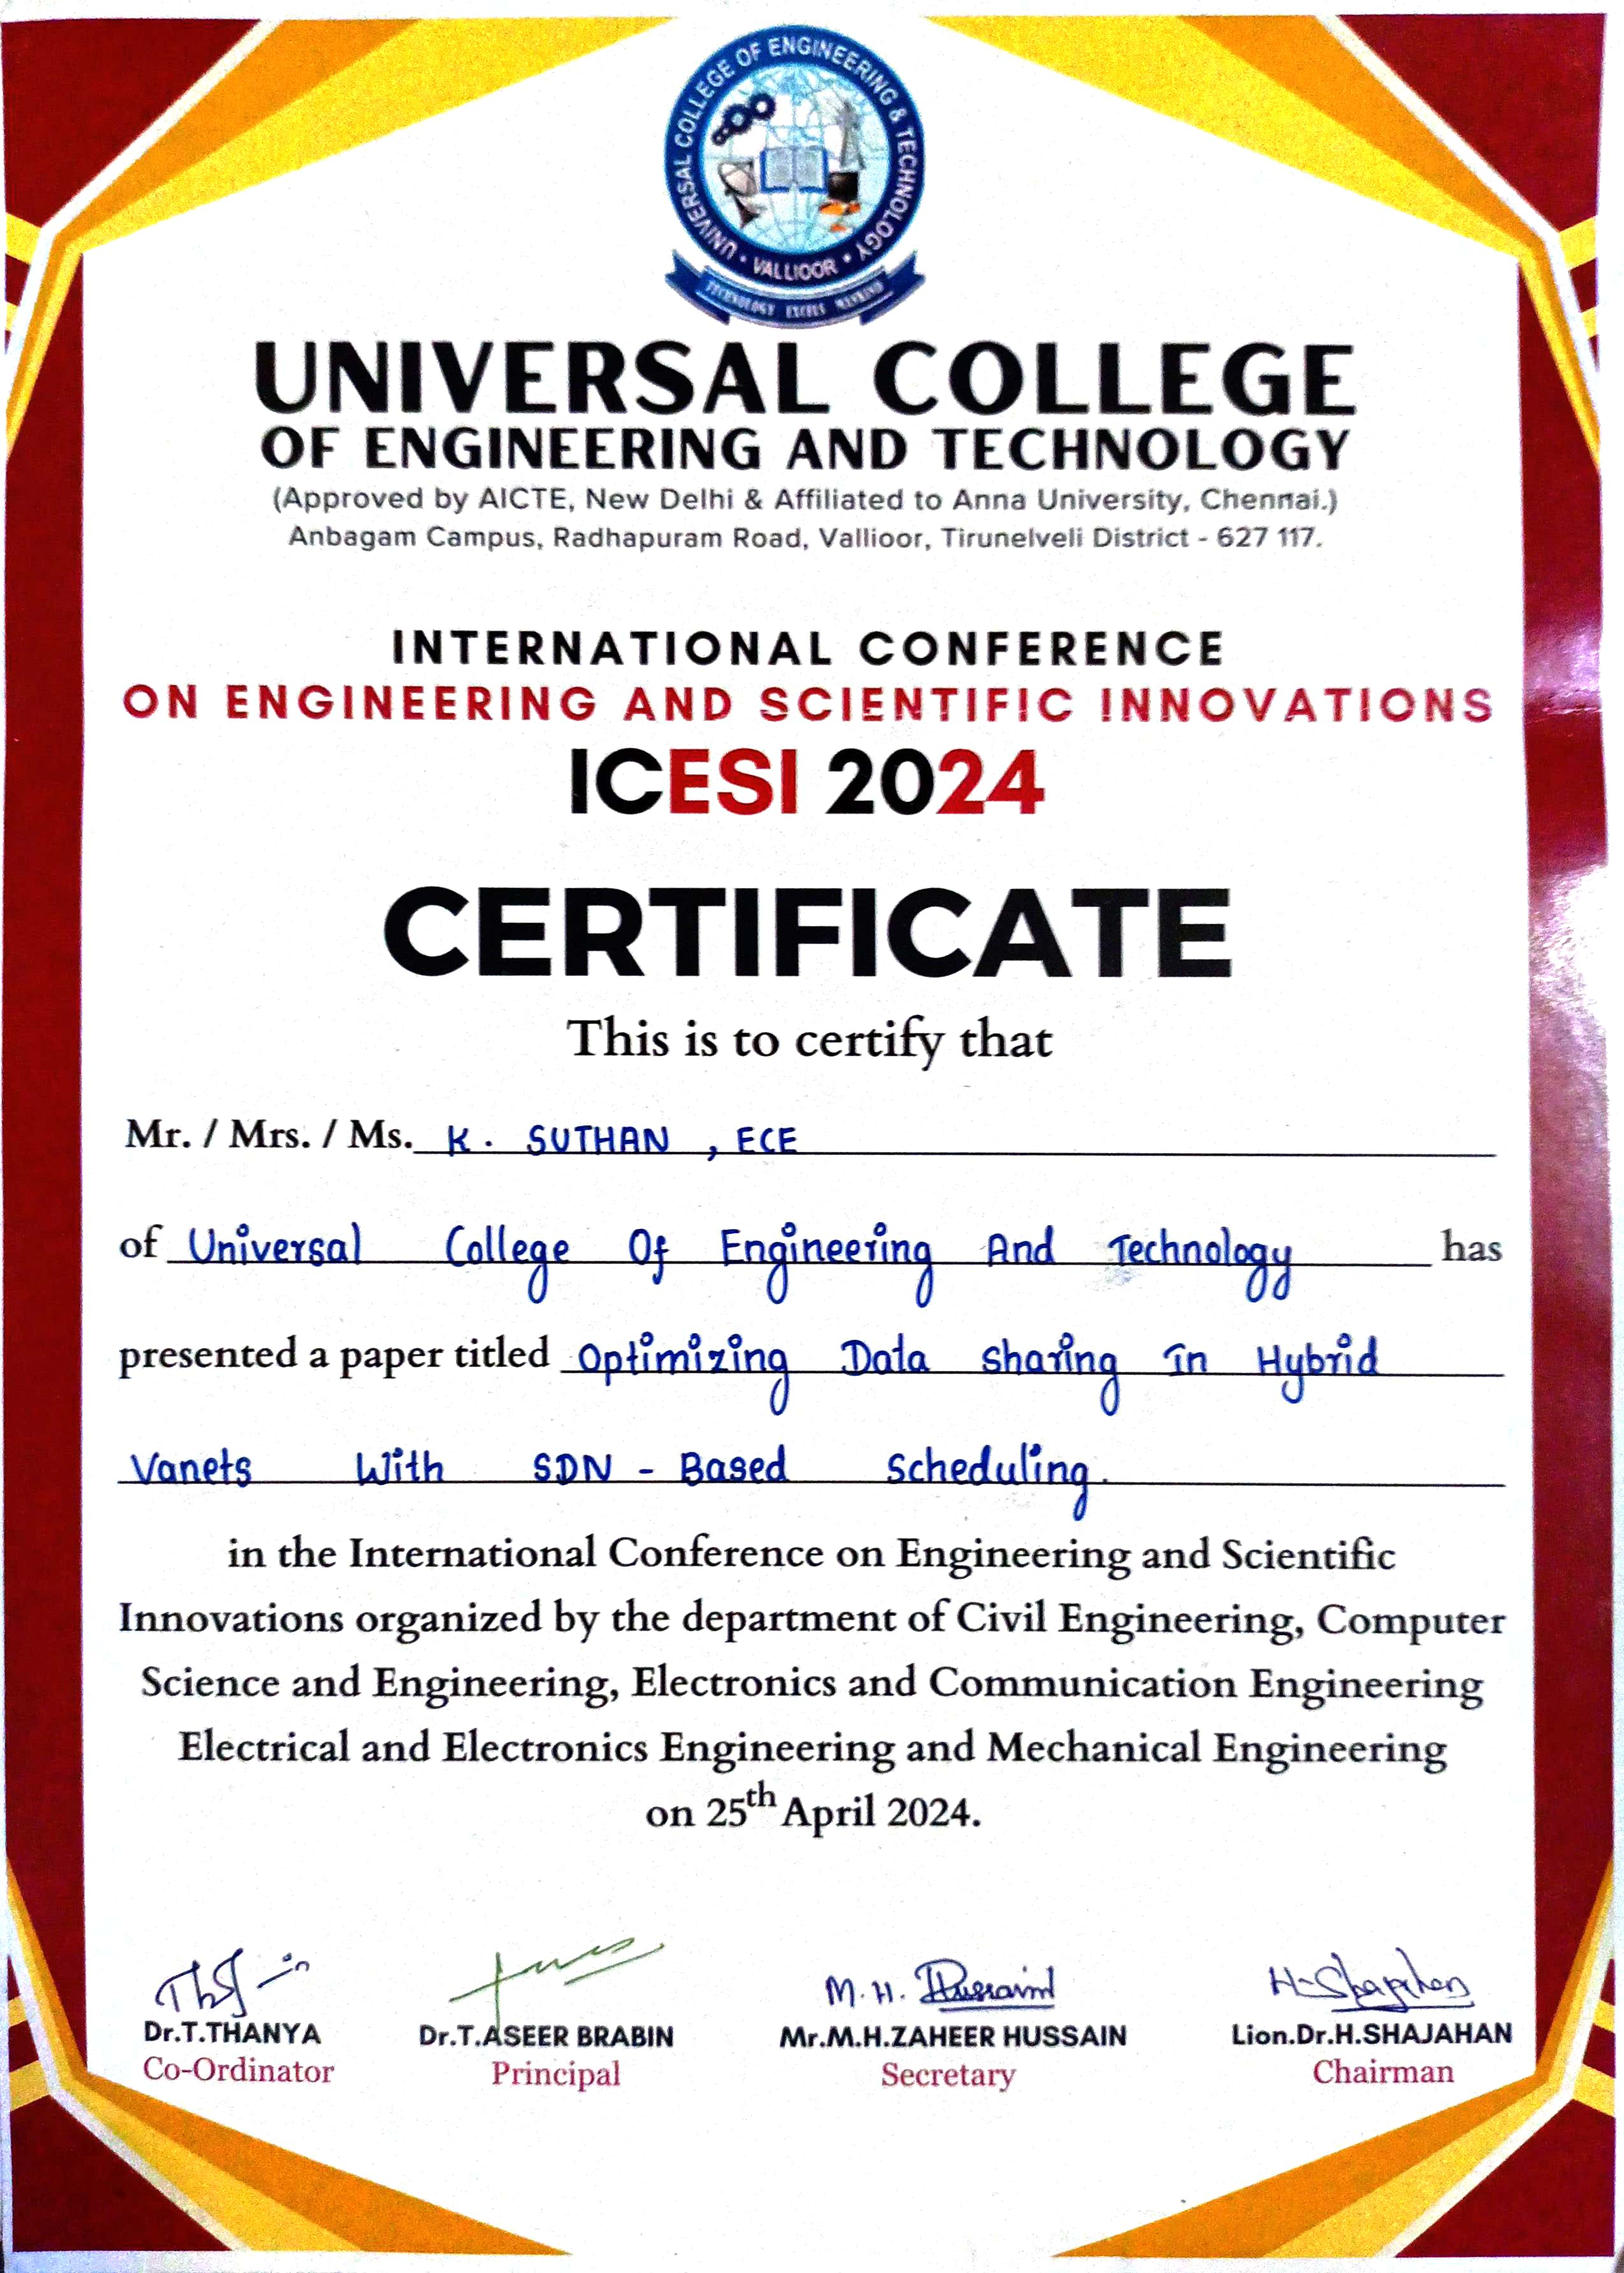 UNIVERSAL COLLEGE OF ENGINEERING & TECHNOLOGY
• VALLIOOR •
TECHNOLOGY EXCELS MANKIND
UNIVERSAL COLLEGE
OF ENGINEERING AND TECHNOLOGY
(Approved by AICTE, New Delhi & Affiliated to Anna University, Chennai.)
Anbagam Campus, Radhapuram Road, Vallioor, Tirunelveli District - 627 117.
INTERNATIONAL CONFERENCE
ON ENGINEERING AND SCIENTIFIC INNOVATIONS
ICESI 2024
CERTIFICATE
This is to certify that
Mr. / Mrs. / Ms. K. SUTHAN, ECE
of Universal College Of Engineering And Technology has
presented a paper titled Optimizing Data sharing in Hybrid
Vanets With SDN - Based Scheduling.
in the International Conference on Engineering and Scientific
Innovations organized by the department of Civil Engineering, Computer
Science and Engineering, Electronics and Communication Engineering
Electrical and Electronics Engineering and Mechanical Engineering
on 25th April 2024.
M.H. Hussain H-Shajahan
Dr.T.THANYA Dr.T.ASEER BRABIN Mr.M.H.ZAHEER HUSSAIN Lion.Dr.H.SHAJAHAN
Co-Ordinator Principal Secretary Chairman